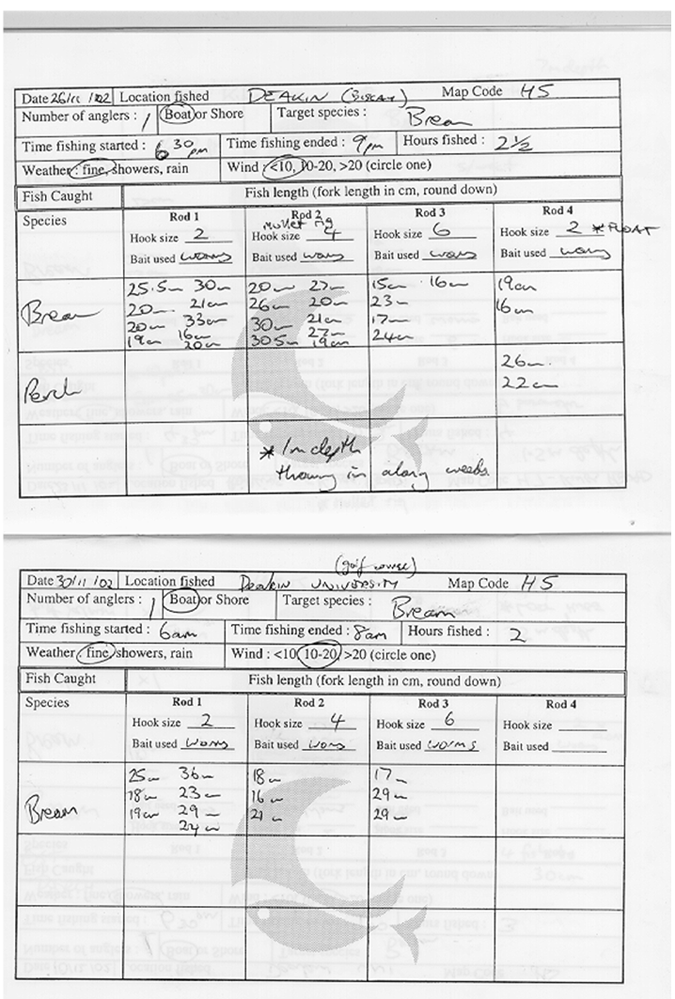 Date 26/11/02 Location fished DEAKIN (BISCAY) Map Code H5
Number of anglers : 1 Boat or Shore Target species : Bream
Time fishing started : 6 30 pm Time fishing ended : 9pm Hours fished : 2 ½
Weather : fine, showers, rain Wind : <10, 10-20, >20 (circle one)
Fish Caught Fish length (fork length in cm, round down)
Species Rod 1 Rod 2 Rod 3 Rod 4
Mullet rig
Hook size 2 Hook size 4 Hook size 6 Hook size 2 * FLOAT
Bait used worms Bait used worms Bait used worms Bait used worms
25.5cm 30cm 20cm 27cm 15cm 16cm 19cm
Bream 20cm 21cm 26cm 20cm 23cm 16cm
20cm 33cm 30cm 21cm 17cm
19cm 16cm 30.5cm 27cm 24cm
20cm 19cm
Perch 26cm
22cm
* 1m depth
throwing in along weeds
(golf course)
Date 30/11/02 Location fished DEAKIN UNIVERSITY Map Code H5
Number of anglers : 1 Boat or Shore Target species : Bream
Time fishing started : 6am Time fishing ended : 8am Hours fished : 2
Weather : fine, showers, rain Wind : <10, 10-20, >20 (circle one)
Fish Caught Fish length (fork length in cm, round down)
Species Rod 1 Rod 2 Rod 3 Rod 4
Hook size 2 Hook size 4 Hook size 6 Hook size
Bait used worms Bait used worms Bait used worms Bait used
25cm 36cm 18cm 17cm
Bream 18cm 23cm 16cm 29cm
19cm 29cm 21cm 29cm
24cm